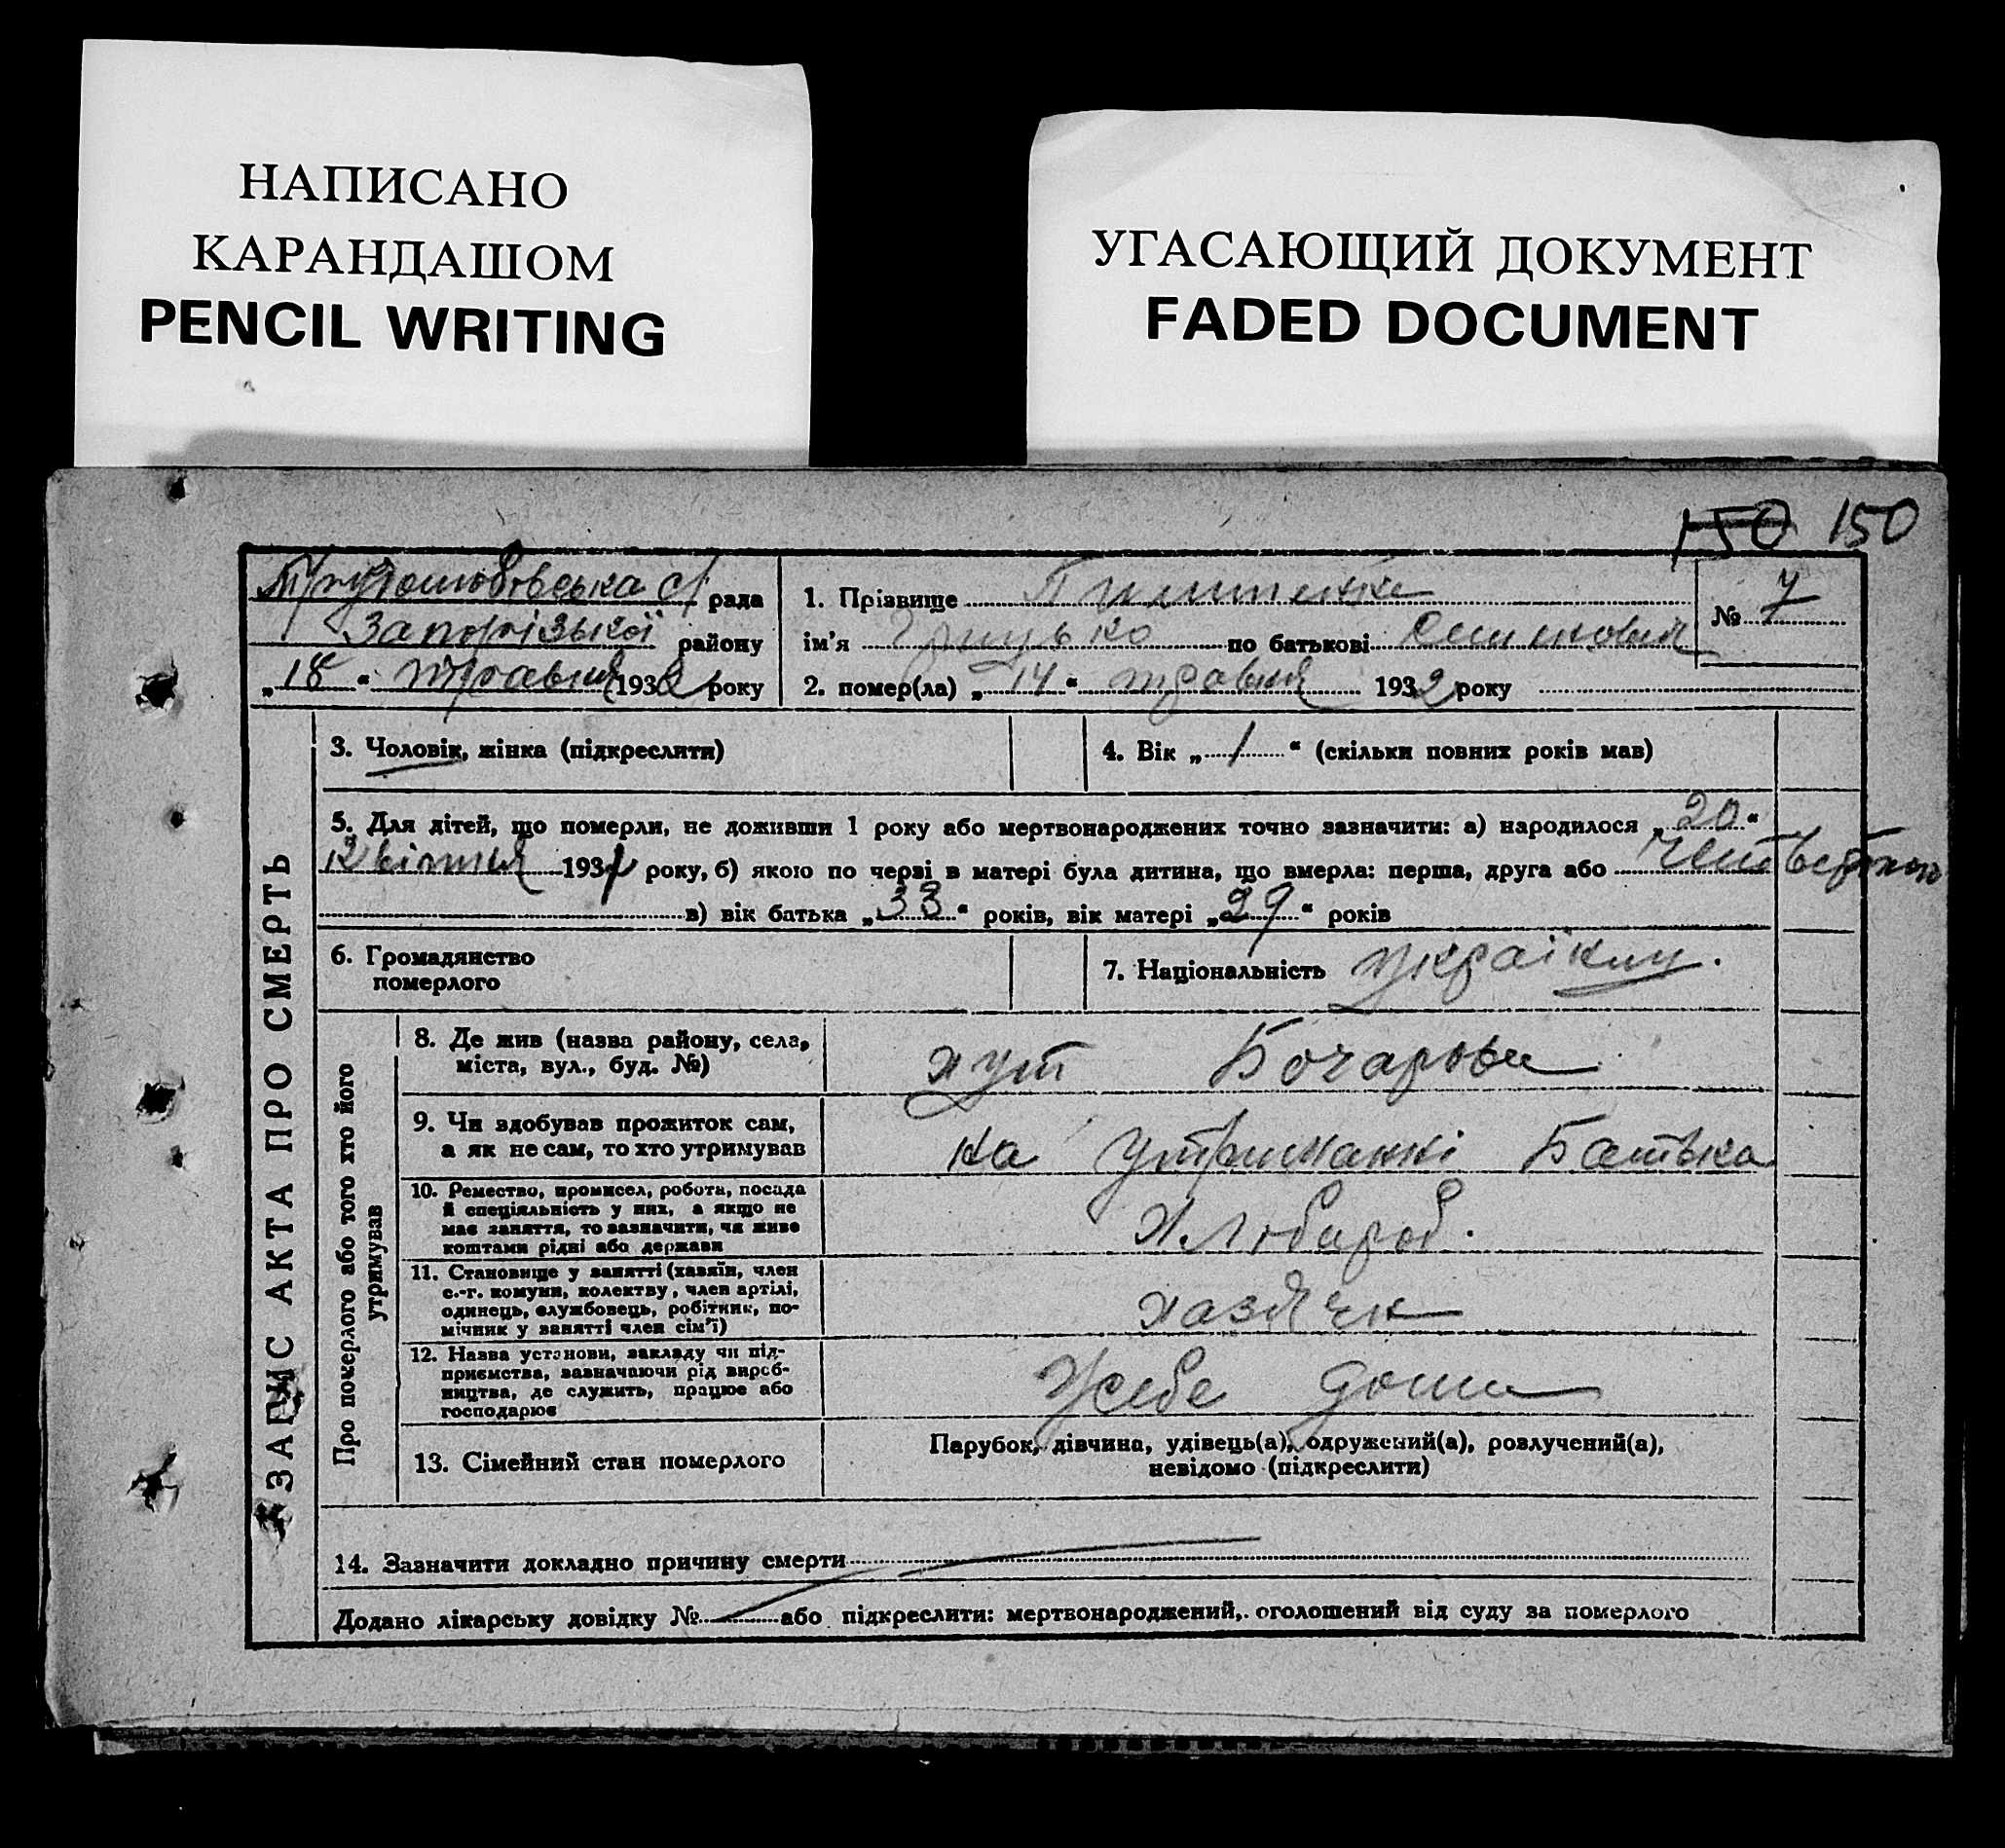 НАПИСАНО
КАРАНДАШОМ
PENCIL WRITING
УГАСАЮЩИЙ ДОКУМЕНТ
FADED DOCUMENT
150 150
Трудолюбовська с/ рада
Запорізької району
„18“ травня 1932 року
1. Прізвище
ім'я Грицько по батькові
2. помер(ла) „14“ травня 1932 року
№ 7
ЗАПИС АКТА ПРО СМЕРТЬ
3. Чоловік, жінка (підкреслити)
4. Вік „1“ (скільки повних років мав)
5. Для дітей, що померли, не доживши 1 року або мертвонароджених точно зазначити: а) народилося „20“
квітня 1931 року, б) якою по черві в матері була дитина, що вмерла: перша, друга або четвертою
в) вік батька „33“ років, вік матері „29“ років
6. Громадянство
померлого
7. Національність україн.
Про померлого або того хто його
утримував
8. Де жив (назва району, села,
міста, вул., буд. №)
хут Бочарови
9. Чи здобував прожиток сам,
а як не сам, то хто утримував
на утриманні Батька
10. Ремество, промисел, робота, посада
й спеціяльність у них, а якщо не
має заняття, то зазначити, чи живе
коштами рідні або держави
Хлібороб.
11. Становище у занятті (хазяїн, член
с.-г. комуни, колектву, член артілі,
одинець, службовець, робітник, по-
мічник у занятті член сім'ї)
12. Назва установи, закладу чи під-
приємства, зазначаючи рід вироб-
ництва, де служить, працює або
господарює
Усебе дома
13. Сімейний стан померлого
Парубок, дівчина, удівець(а), одружений(а), розлучений(а),
невідомо (підкреслити)
14. Зазначити докладно причину смерти
Додано лікарську довідку № або підкреслити: мертвонароджений, оголошений від суду за померлого